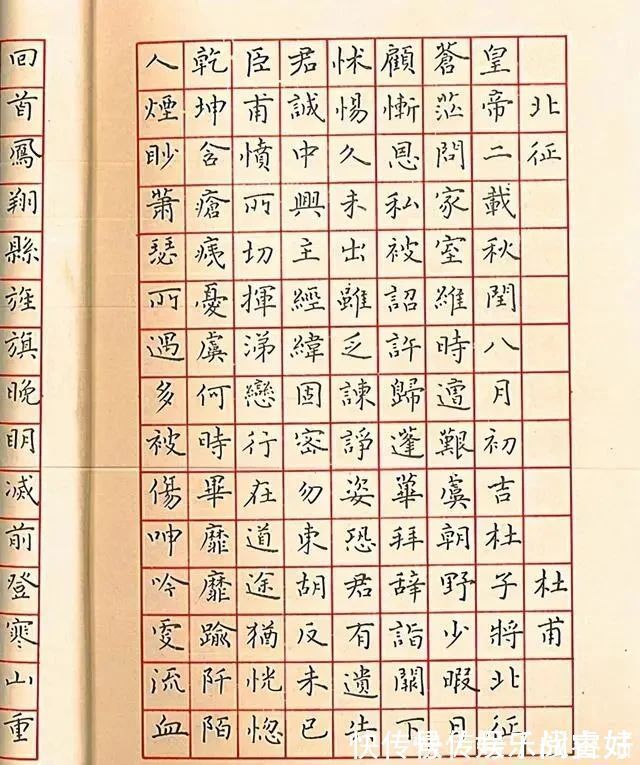 北征 杜甫
皇帝二載秋閏八月初吉杜子將北征
蒼茫問家室維時遭艱虞朝野少暇日
顧慚恩私被詔許歸蓬蓽拜辭詣闕下
怵惕久未出雖乏諫諍姿恐君有遺失
君誠中興主經緯固密勿東胡反未已
臣甫憤所切揮涕戀行在道途猶恍惚
乾坤含瘡痍憂虞何時畢靡靡踰阡陌
人煙眇蕭瑟所遇多被傷呻吟更流血
回首鳳翔縣旌旗晚明滅前登寒山重